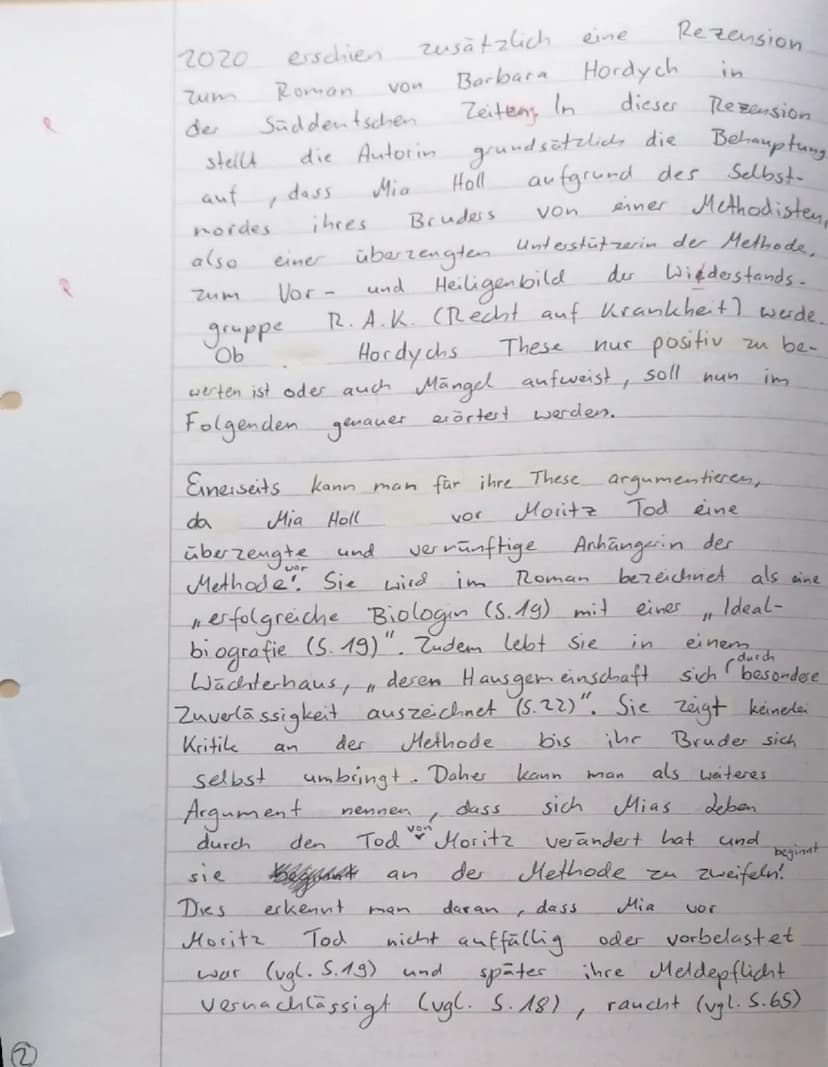 2020 erschien zusätzlich eine Rezension
zum Roman von Barbara Hordych in
der Süddeutschen Zeitung. In dieser Rezension
stellt die Autorin grundsätzlich die Behauptung
auf, dass Mia Holl aufgrund des Selbst-
mordes ihres Bruders von einer Methodisten,
also einer überzeugten Unterstützerin der Methode,
zum Vor- und Heiligenbild der Wiederstands-
gruppe R.A.K. (Recht auf Krankheit) werde.
Ob Hordychs These nur positiv zu be-
werten ist oder auch Mängel aufweist, soll nun im
Folgenden genauer erörtert werden.
Einerseits kann man für ihre These argumentieren,
da Mia Holl vor Moritz Tod eine
überzeugte und vernünftige Anhängerin der
Methode war. Sie wird im Roman bezeichnet als eine
„erfolgreiche Biologin (S.19) mit einer „Ideal-
biografie (S.19)". Zudem lebt sie in einem
Wächterhaus, „deren Hausgemeinschaft sich durch besondere
Zuverlässigkeit auszeichnet (S.22)". Sie zeigt keinerlei
Kritik an der Methode bis ihr Bruder sich
selbst umbringt. Daher kann man als weiteres
Argument nennen, dass sich Mias Leben
durch den Tod von Moritz verändert hat und
sie an der Methode zu zweifeln beginnt.
Dies erkennt man daran, dass Mia vor
Moritz Tod nicht auffällig oder vorbelastet
war (vgl. S.19) und später ihre Meldepflicht
vernachlässigt (vgl. S.18), raucht (vgl. S.65)
R
R
2